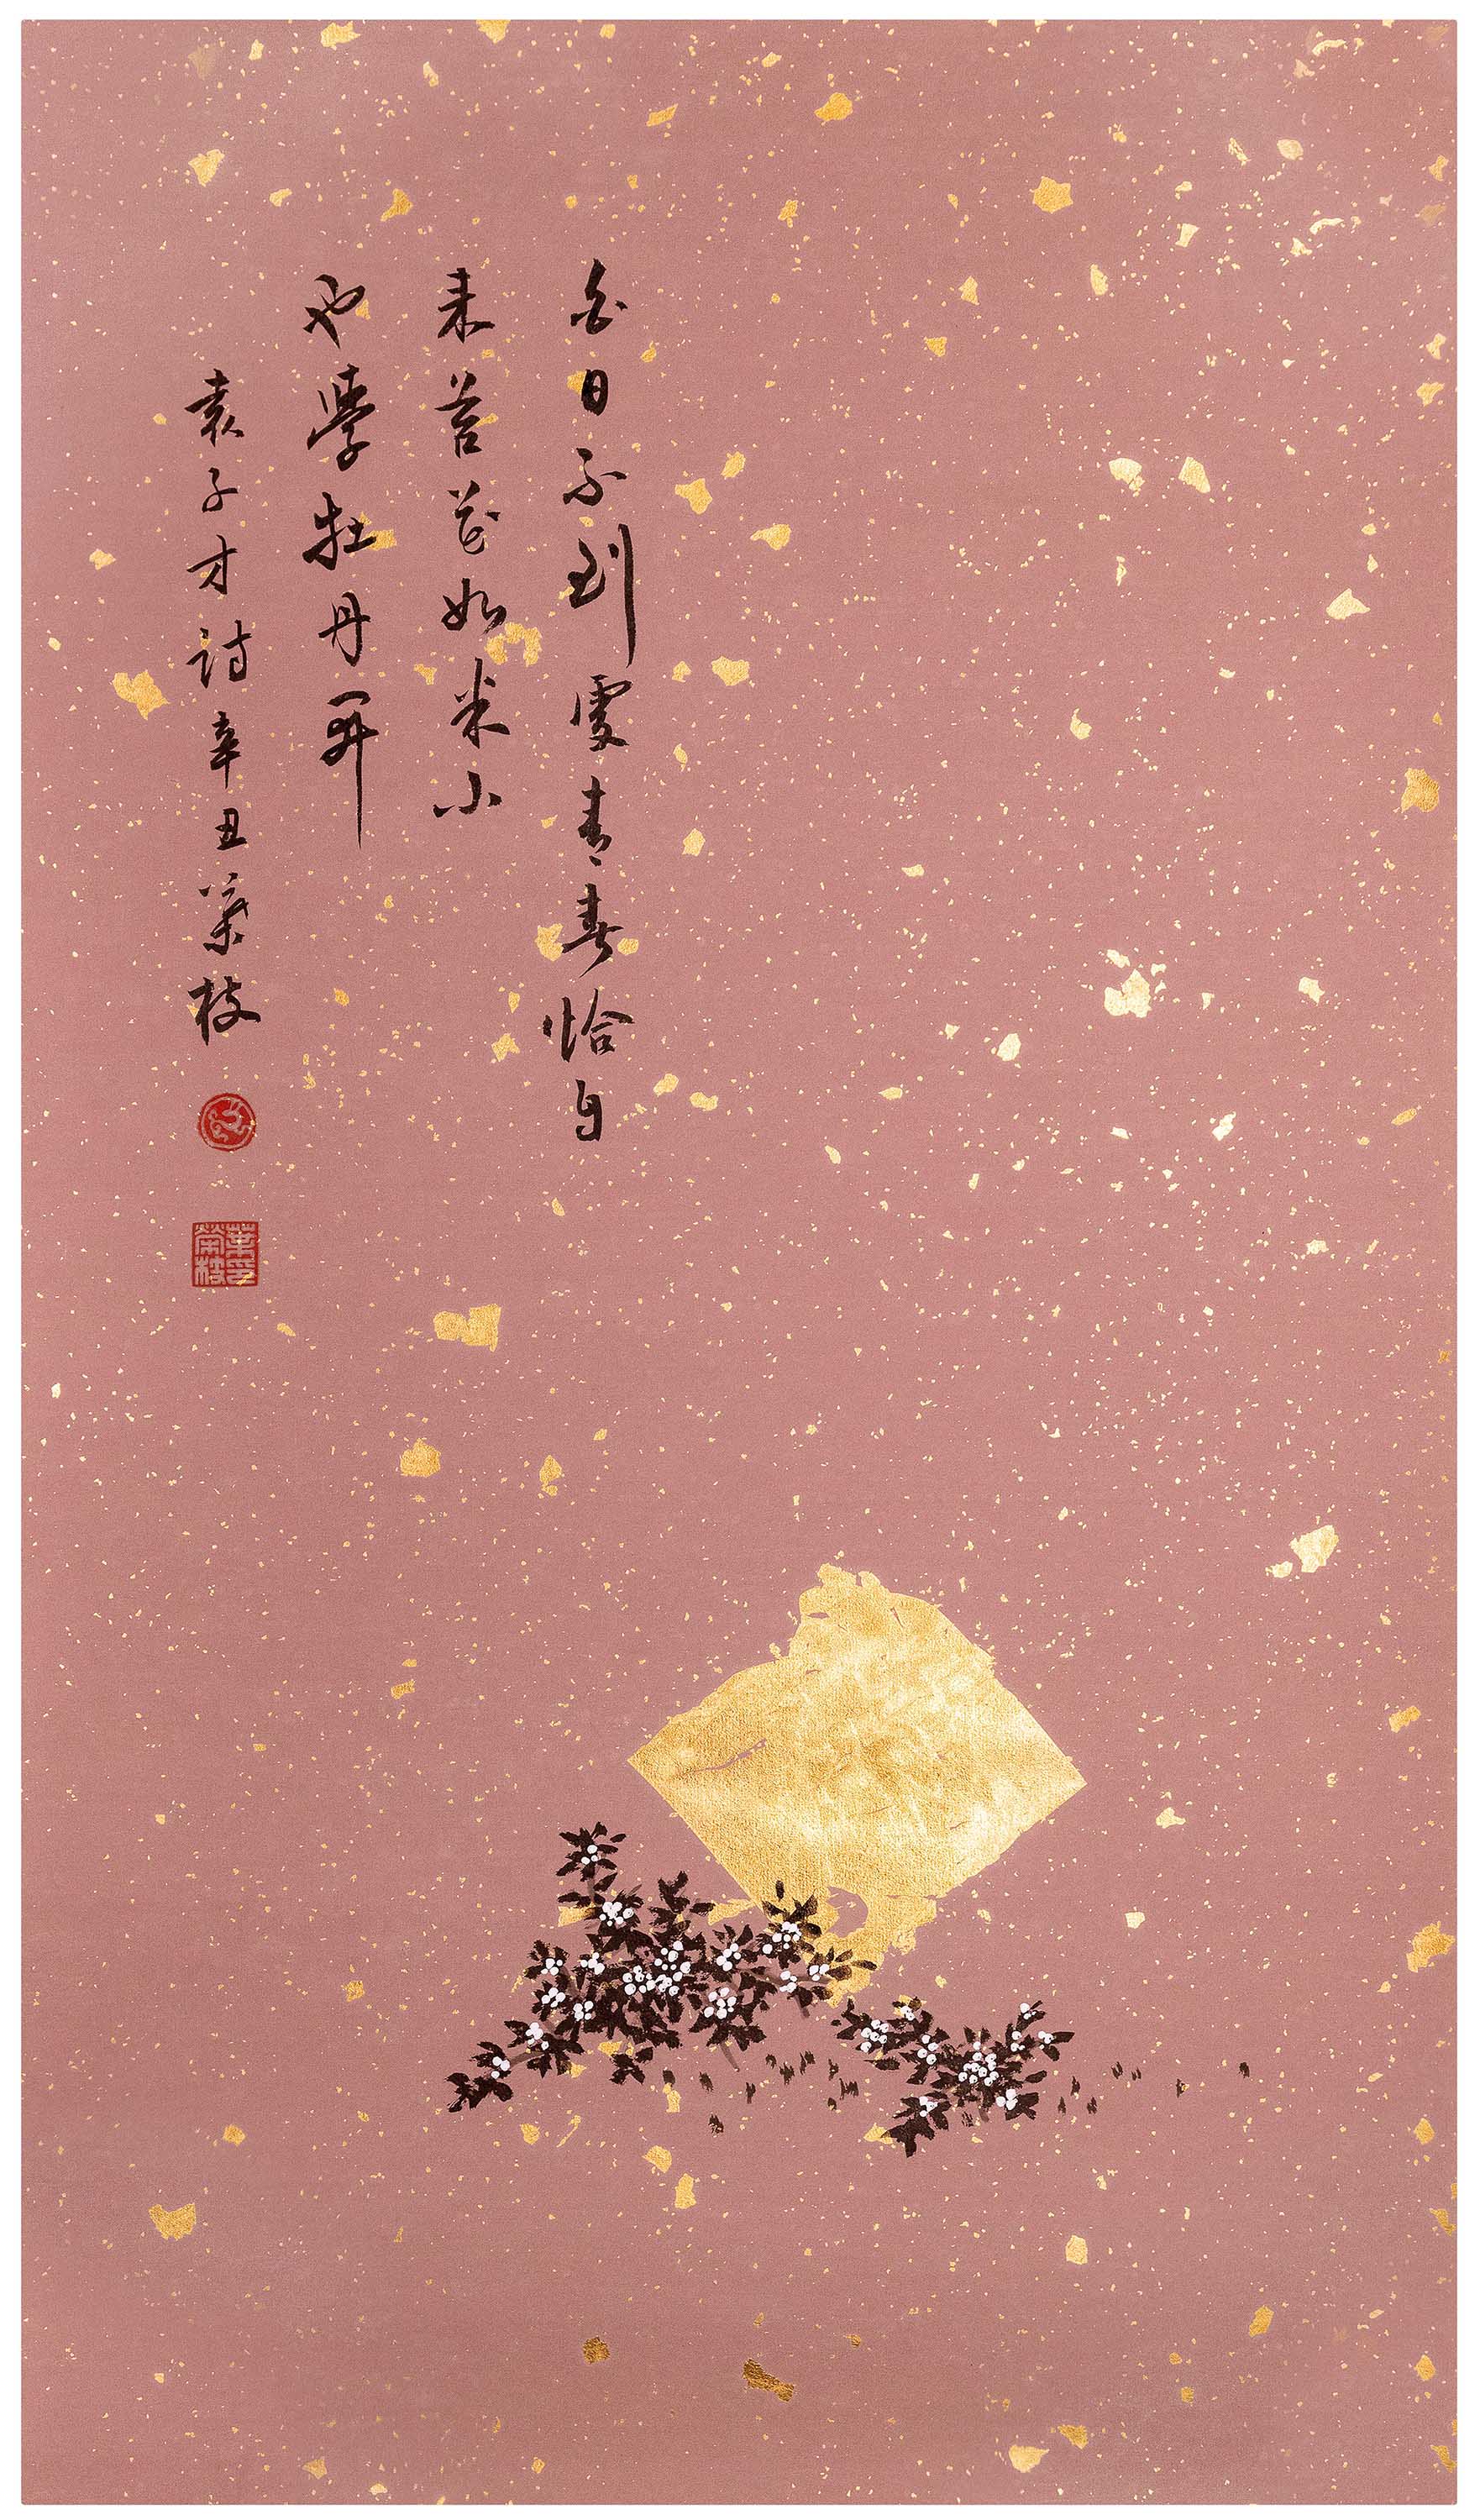 白日不到處青春恰自
来苔花如米小
也學牡丹開
袁子才詩辛丑榮枝
葉榮枝印